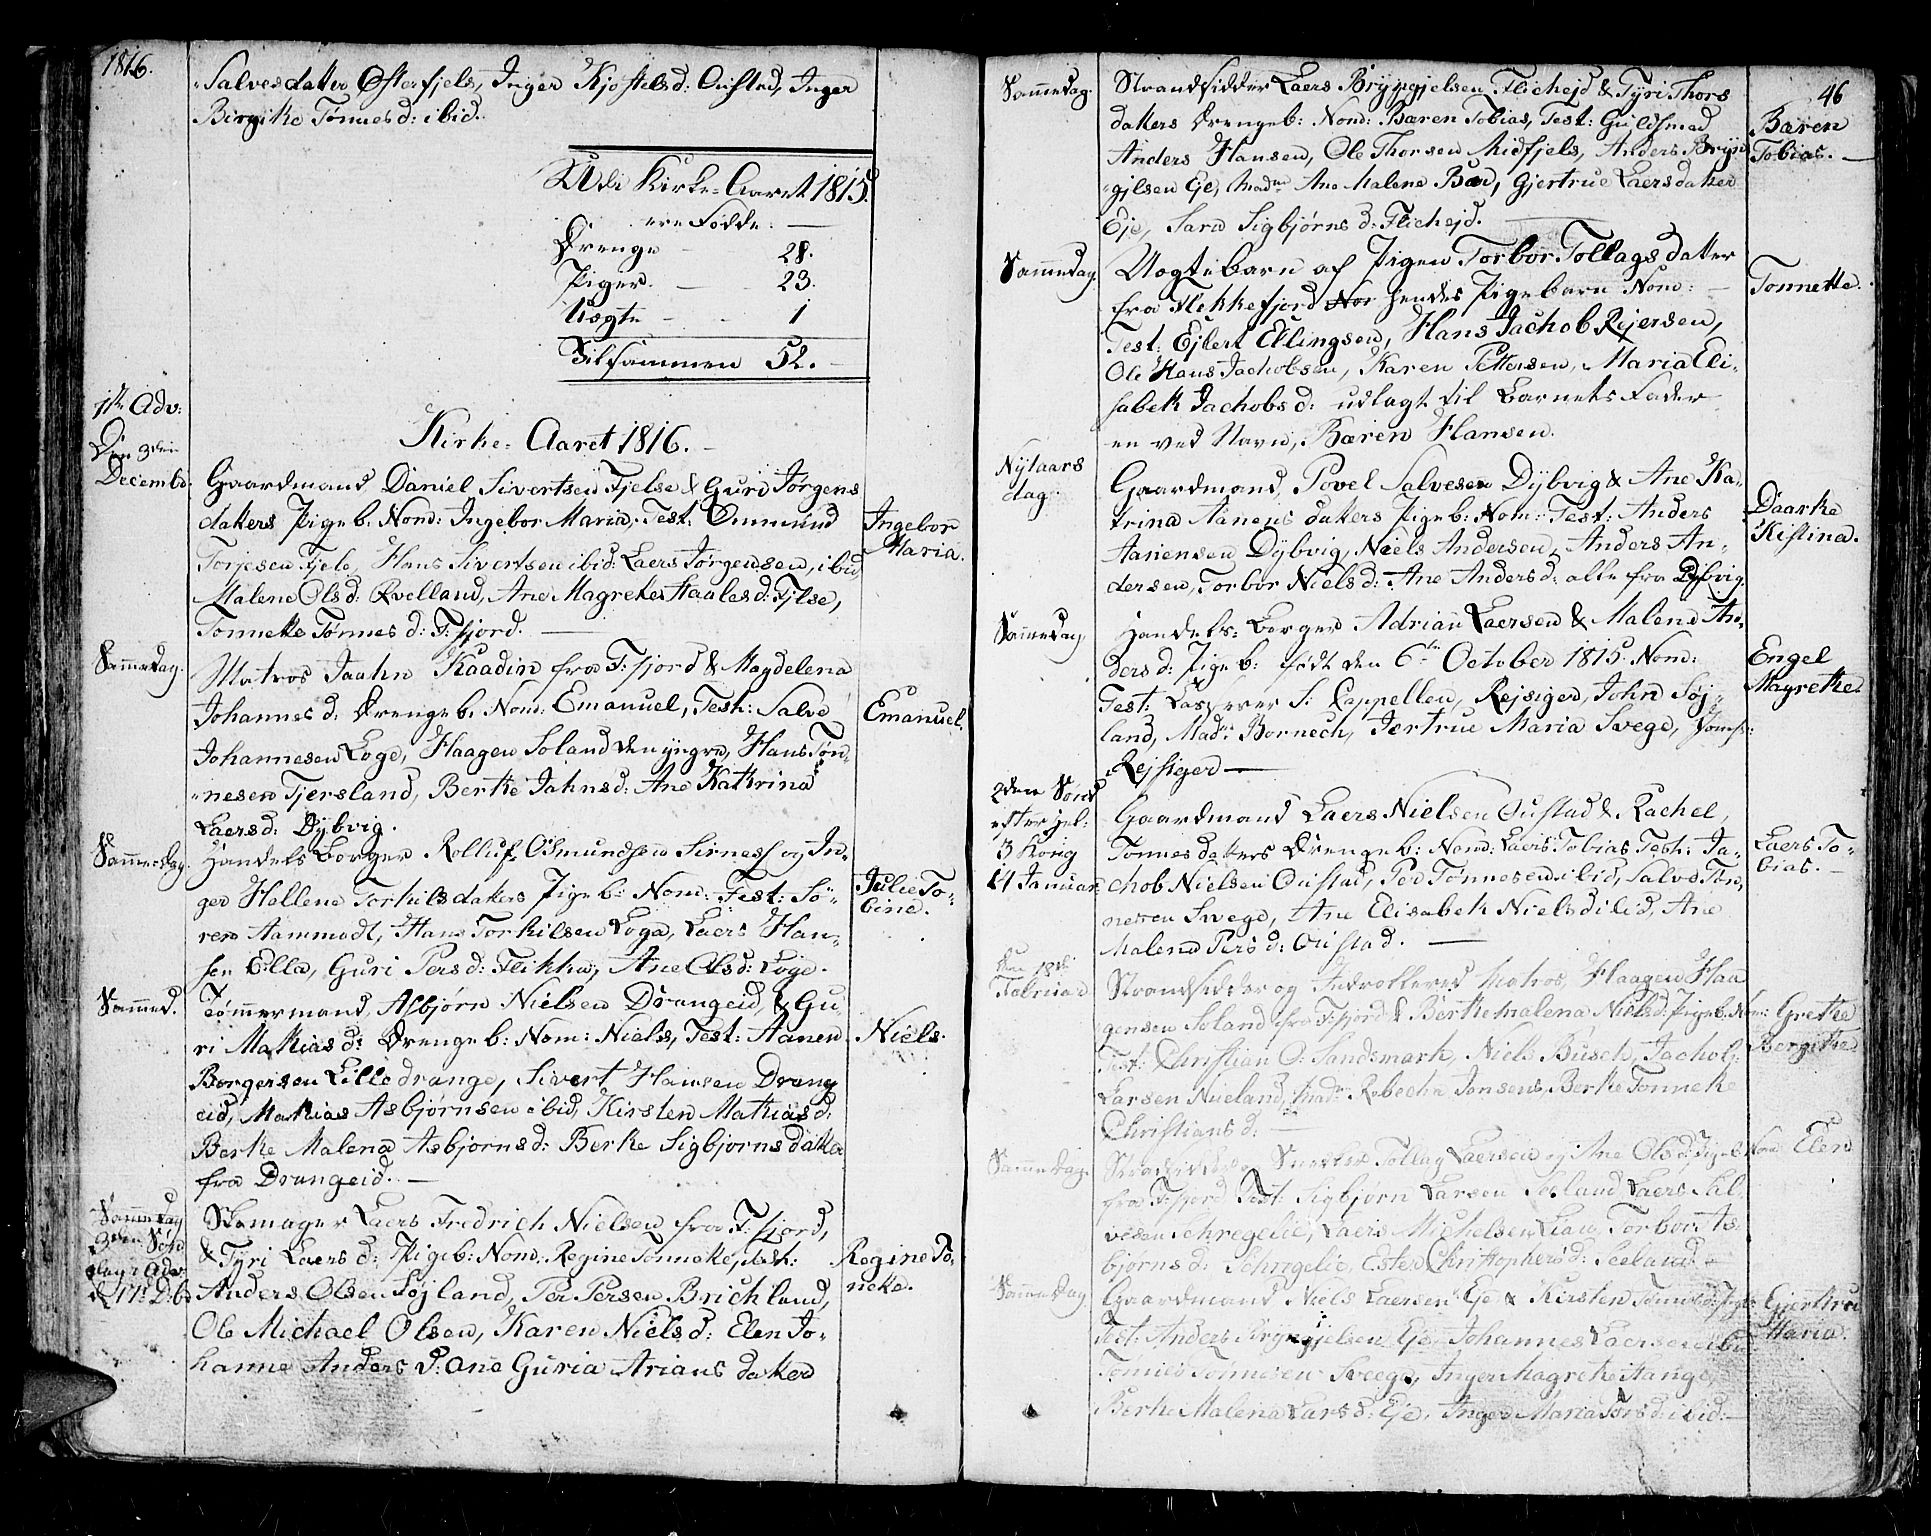 1816.
Salvesdatter Østerfjels, Inger Kjøstelsd: Ousted, Inger
Birgithe Tønnesd: ibid.
Udi Kirke-Aaret 1815.
ere Fødde: —
Drenge — 28.
Piger. — 23.
Uægte — 1
Tilsammen 52.
Kirke-Aaret 1816. —
1ste Adv:
Den 3die
Decembr.
Gaardmand Daniel Sivertsen Fjelse & Guri Jørgens
datters Pigeb: Nom: Ingebor Maria. Test: Ommund
Torjesen Fjelse, Hans Sivertsen ibid: Laers Jørgensen, ibid
Malene Olsd: Qvelland, Ane Magrethe Haalesd: Fjlse,
Tonnette Tønnesd: F:fjord. —
Ingebor
Maria.
Sammedag.
Matros Jaahn Kaadin fra F:fjord & Magdelena
Johannesd: Drengeb: Nom: Emanuel, Test: Salve
Johannesen Loge, Haagen Soland den yngre, Hans Tøn-
nesen Tjersland, Berthe Jahnsd: Ane Kathrina
Laersd: Dybvig.
Emanuel.
Sammedag.
Handels Borger Rolluf Osmundsen Sirnes og In-
ger Hellene Torkilsdatters Pigeb: Nom: Test: Sø-
ren Aammodt, Hans Torkilsen Loga, Laers Han-
sen Ella, Guri Persd: Flikka, Ane Olsd: Loge.
Julie To-
bine.
Sammed.
Tømmermand, Asbjørn Nielsen Drangeid, & Gu
ri Mathiasd: Drengeb: Nom: Niels, Test: Aanen
Borgersen Lilledrange, Sivert Hansen Drang
eid, Mathias Asbjørnsen ibid, Kirsten Mathiasd:
Berthe Malena Asbjørnsd: Berthe Sigbjørnsdatter
fra Drangeid. —
Niels.
Sammedag
3die Sønd
dag i Adv:
d: 17de D:br
Skomager Laers Fredrich Nielsen fra F:fjord,
& Tyri Laersd: Pigeb: Nom: Regine Tonnette, Test:
Anders Olsen Søjland, Per Persen Brichland,
Ole Michael Olsen, Karen Nielsd: Elen Jo-
hanne Andersd: Ane Guria Arians datter
Regine To-
nette.
46
Sammedag.
Strandsidder Laers Bryngjelsen Flichejd & Tyri Thors
datters Drengeb: Nom: Bæren Tobias, Test: Guldsmed
Anders Hansen, Ole Thorsen Midfjels, Anders Bryn
gjlsen Eje, Madm Ane Malene Bær, Gjertrue Laersdatter
Eje, Sara Sigbjørnsd: Flichejd.
Bæren
Tobias. —
Sammedag.
Uægtebarn af Pigen Torbor Tollagsdatter
fra Flekkefjord Nor hendes Pigebarn Nom: —
Test: Ejlert Ellingsen, Hans Jachob Rejersen,
Ole Hans Jachobsen, Karen Pettersen, Maria Eli-
sabet Jachobsd: udlagt til Barnets Fader
en ved Navn, Bæren Hansen.
Tonnette.
Nytaars
dag.
Gaardmand, Povel Salvesen Dybvig & Ane Ka-
trina Aanensdatters Pigeb: Nom: Test: Anders
Aanensen Dybvig, Niels Andersen, Anders An-
dersen, Torbor Nielsd: Ane Andersd: alle fra Dybvig
Daarthe
Kistina.
Sammedag
Handels-Borger Adrian Laersen & Malene An-
dersd: Pigeb: født den 6te October 1815. Nom:
Test: Casperer S: Cappellen, Rejsiger, John Søj-
land, Mad: Bornech, Jertrue Maria Svege, Jomfr:
Rejsiger —
Engel
Magrethe
2den Sønd
efter Hel:
3 Kong
14 Januar
Gaardmand Laers Nielsen Oustad & Rachel,
Tønnesdatters Drengeb: Nom: Laers Tobias. Test: Ja-
chob Nielsen Oustad, Per Tønnesen ibid, Salve Tøn-
nessen Svege, Ane Elisabet Nielsd ibid, Ane
Malena Persd: Oustad. —
Laers To-
bias. —
Den 18de
Februar
Strandsidder og Indrolleret Matros, Haagen Haa
gensen Soland fra F:fjord & Berthe malena Nielsd: Pigeb: Nom:
Test: Christian O: Sandsmark, Niels Busch, Jachob
Larsen Nueland, Mad: Rebecha Jonsens, Berthe Tonnette
Christiansd: —
Grethe
Bergithe
Sammedag.
Strandsidder Tollag Laersen og Ane Olsd: Pigeb: Nom:
fra F:fjord Test: Sigbjørn Larsen Seeland Laers Sal
vesen Schregelie, Laers Michelsen Liaw, Torbor As
bjørnsd: Schrigelie, Ester Christophersd: Seeland —
Elen
Sammedag
Gaardmand Niels Laersen Eje & Kirsten
Test: Anders Bryngjelsen Eje Johannes Laersen ibid
Tønnes Tønnesen Sveege, Inger Magrethe Hange,
Berthe Malena Larsd: Eje, Inger Maria Larsd: ibid: —
Gjertrue
Maria.